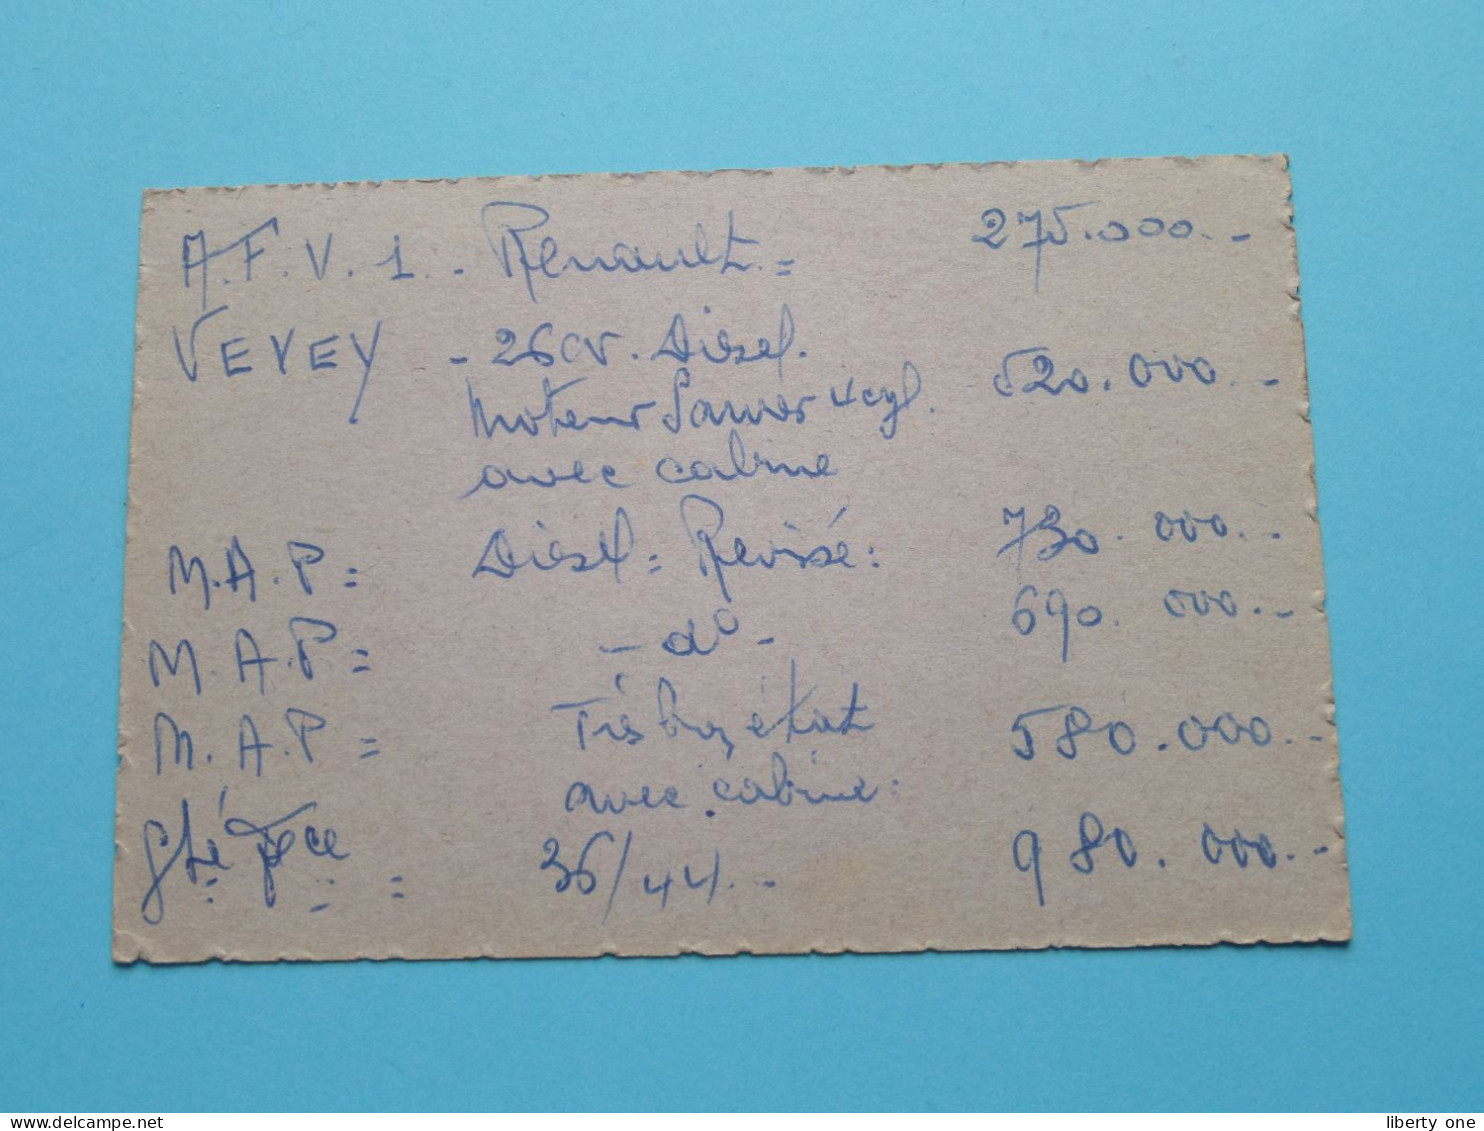 A.F.V.1. - Renault. = 275.000.-
VEVEY - 26 cv. Diésel.
Moteur Saurer 4 cyl. 520.000.-
avec cabine
M.A.P = Diésel = Revisé: 730.000.-
M.A.P = - d° - 690.000.-
M.A.P = Très bon état 580.000.-
avec cabine:
= 36/44.- 980.000.-
delcampe.net
liberty one